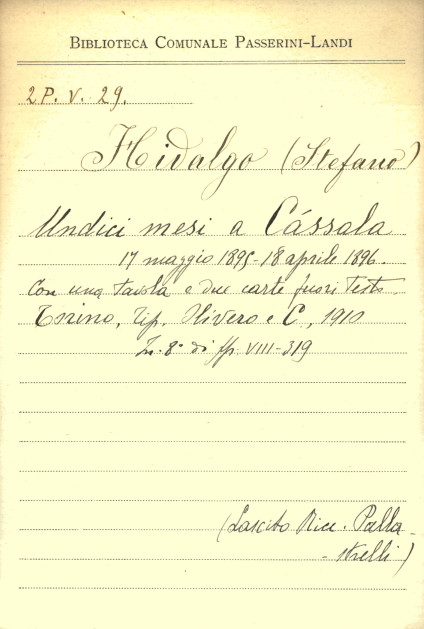 BIBLIOTECA COMUNALE PASSERINI-LANDI
2 P. V. 29.
Hidalgo (Stefano)
Undici mesi a Cássala
17 maggio 1895-18 aprile 1896.
Con una tavola e due carte fuori testo
Torino, Tip. Olivero e C., 1910
In-8° di pp. VIII-319
(Lascito Ricc. Palla-
-strelli)